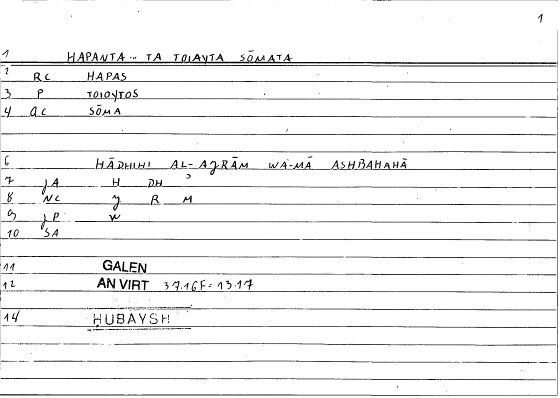 1
1 HAPANTA .. TA TOIAYTA SŌMATA
2 RC HAPAS
3 P TOIOYTOS
4 QC SŌMA
6 HĀDHIHI AL-AJRĀM WA-MĀ ASHBAHAHĀ
7 JA H DH ʾ
8 NC J R M
9 JP W
10 SA
11 GALEN
12 AN VIRT 37.16F = 13.17
14 ḤUBAYSH